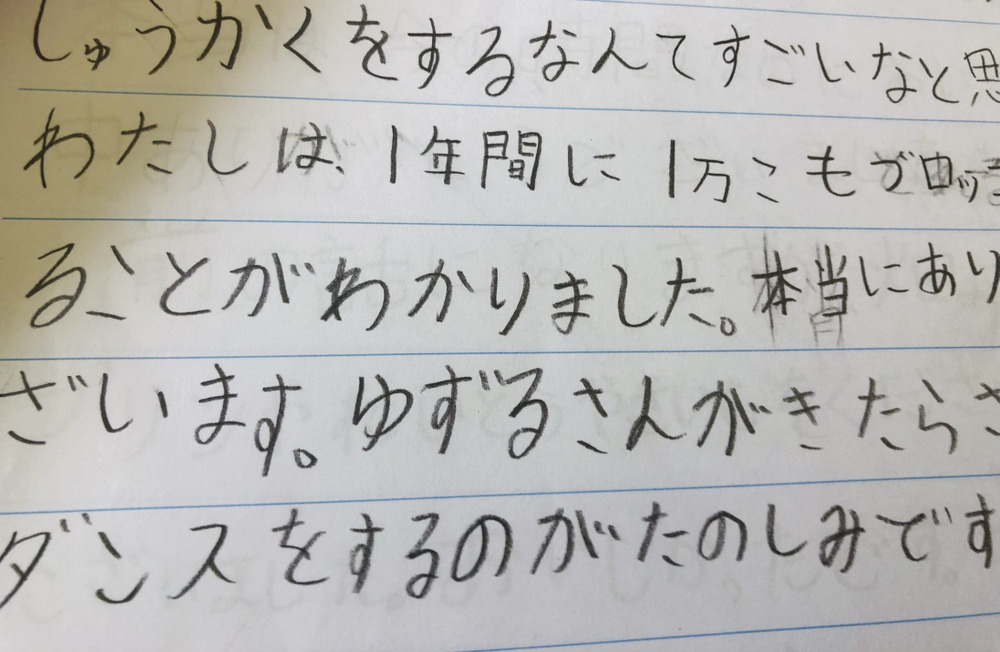 しゅうかくをするなんてすごいなと思
わたしは、1年間に1万こもブロッ
ることがわかりました。本当にあり
ざいます。ゆずるさんがきたらさ
ダンスをするのがたのしみです